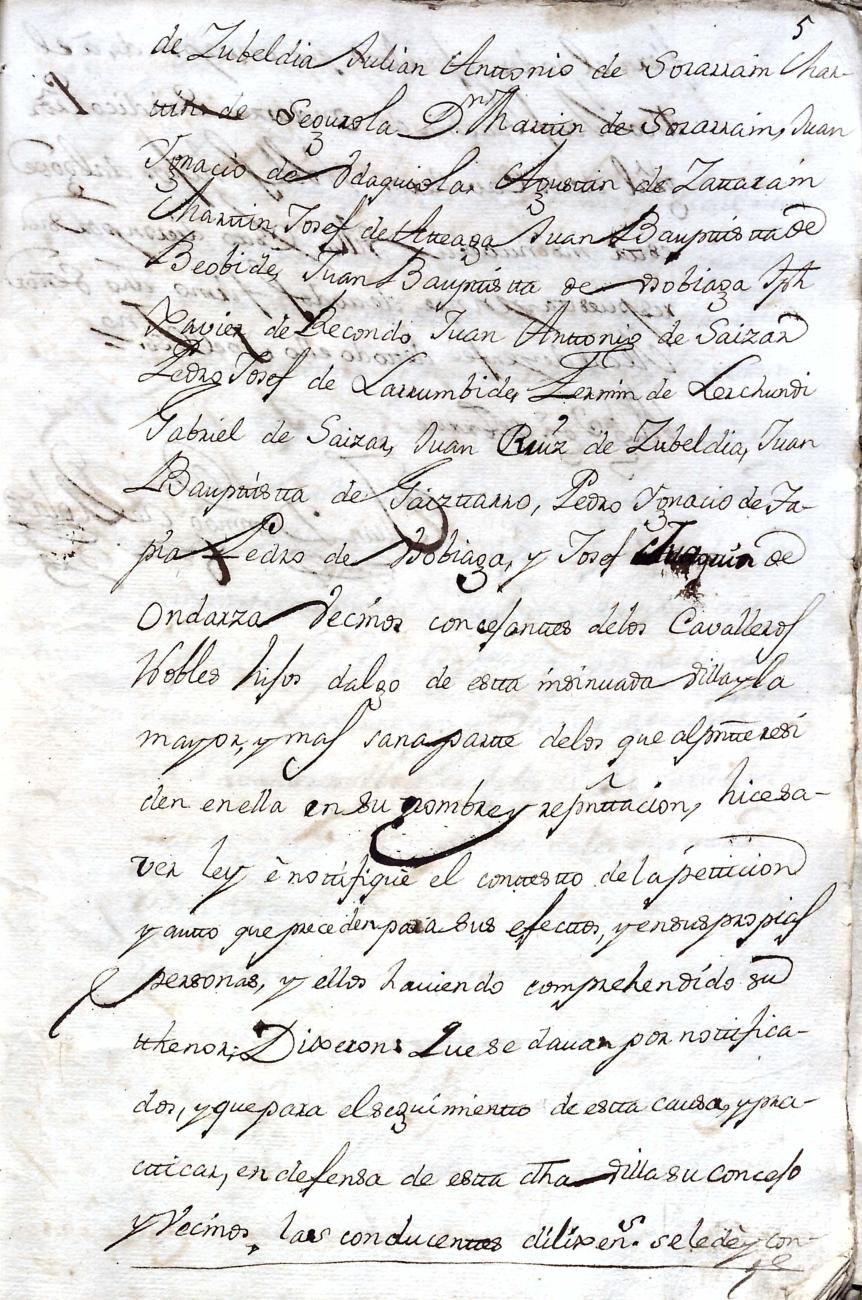 5
de Zubeldia Julian Anttonio de Sorarrain Mar-
ttin de Segurola Dn. Marttin de Sorarrain, Juan
Ygnacio de Ydaquiola, Agusttin de Zattarain
Marttin Josef de Atteaga Juan Bauptistta de
Beobide, Juan Bauptistta de Yrobiaga Jph
Xavier de Recondo, Juan Anttonio de Saizar
Pedro Josef de Larrumbide, Fermin de Lerchundi
Gabriel de Saizar, Juan Ruiz de Zubeldia, Juan
Bauptistta de Gaizttarro, Pedro Ygnacio de Ta-
pia Pedro de Yrobiaga, y Josef Juaquin de
Ondarza Vecinos concejanttes delos Cavalleros
Nobles hijos dalgo de estta insinuada villa y la
mayor, y mas sana partte delos que al pntte resi
den en ella en su nombre y repnttacion, hice sa-
ver ley è nottifiquè el conttestto de la petticion
y autto que preceden para sus efecttos, y en sus propias
personas, y ellos haviendo comprehendido su
tthenor; Dixeron: Que se davan por nottifica-
dos, y que para el seguimientto de estta causa, y pra-
ctticar, en defensa de estta dha villa su concejo
y Vecinos, las conducenttes dilixens. se le dè y con-